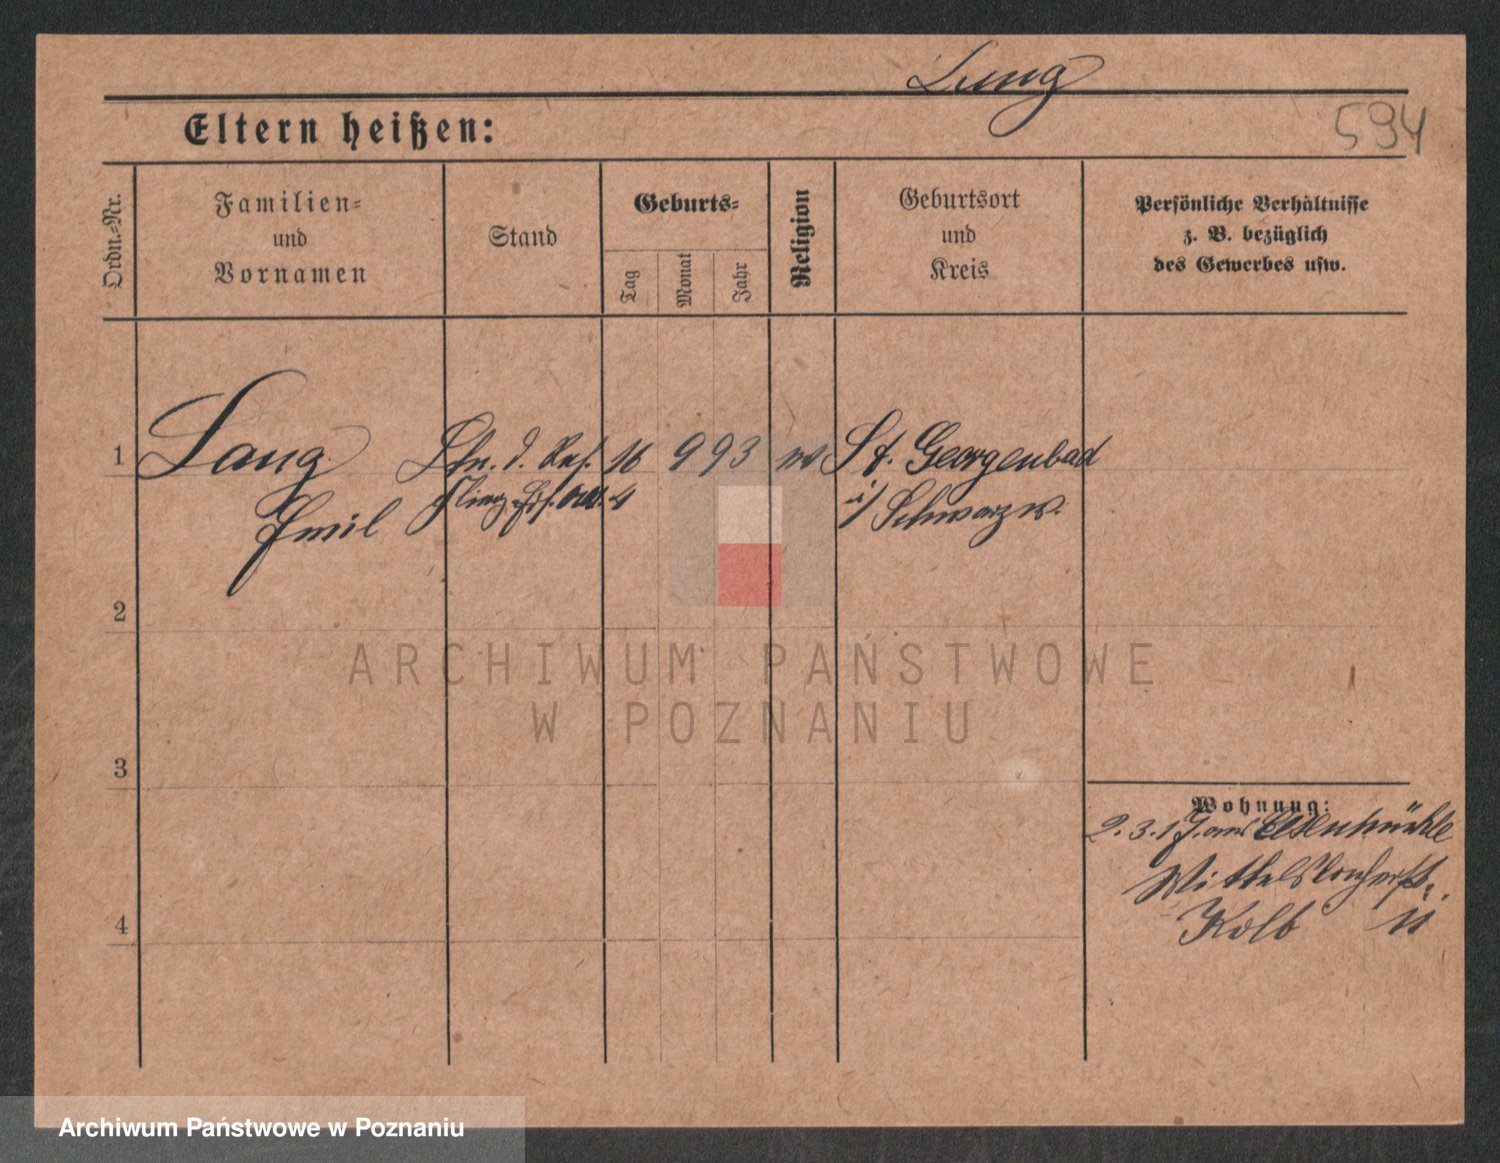 Lang
594
Eltern heißen:
Ordn.-Nr.
Familien-
und
Vornamen
Stand
Geburts-
Tag
Monat
Jahr
Religion
Geburtsort
und
Kreis
Persönliche Verhältnisse
z. B. bezüglich
des Gewerbes usw.
1 Lang 16 9 93 St. Georgenbad
Emil 4 i/ Schwarzw.
2
ARCHIWUM PAŃSTWOWE
W POZNANIU
3
Wohnung:
2.3.17. aus
4 Kolb 11
Archiwum Państwowe w Poznaniu